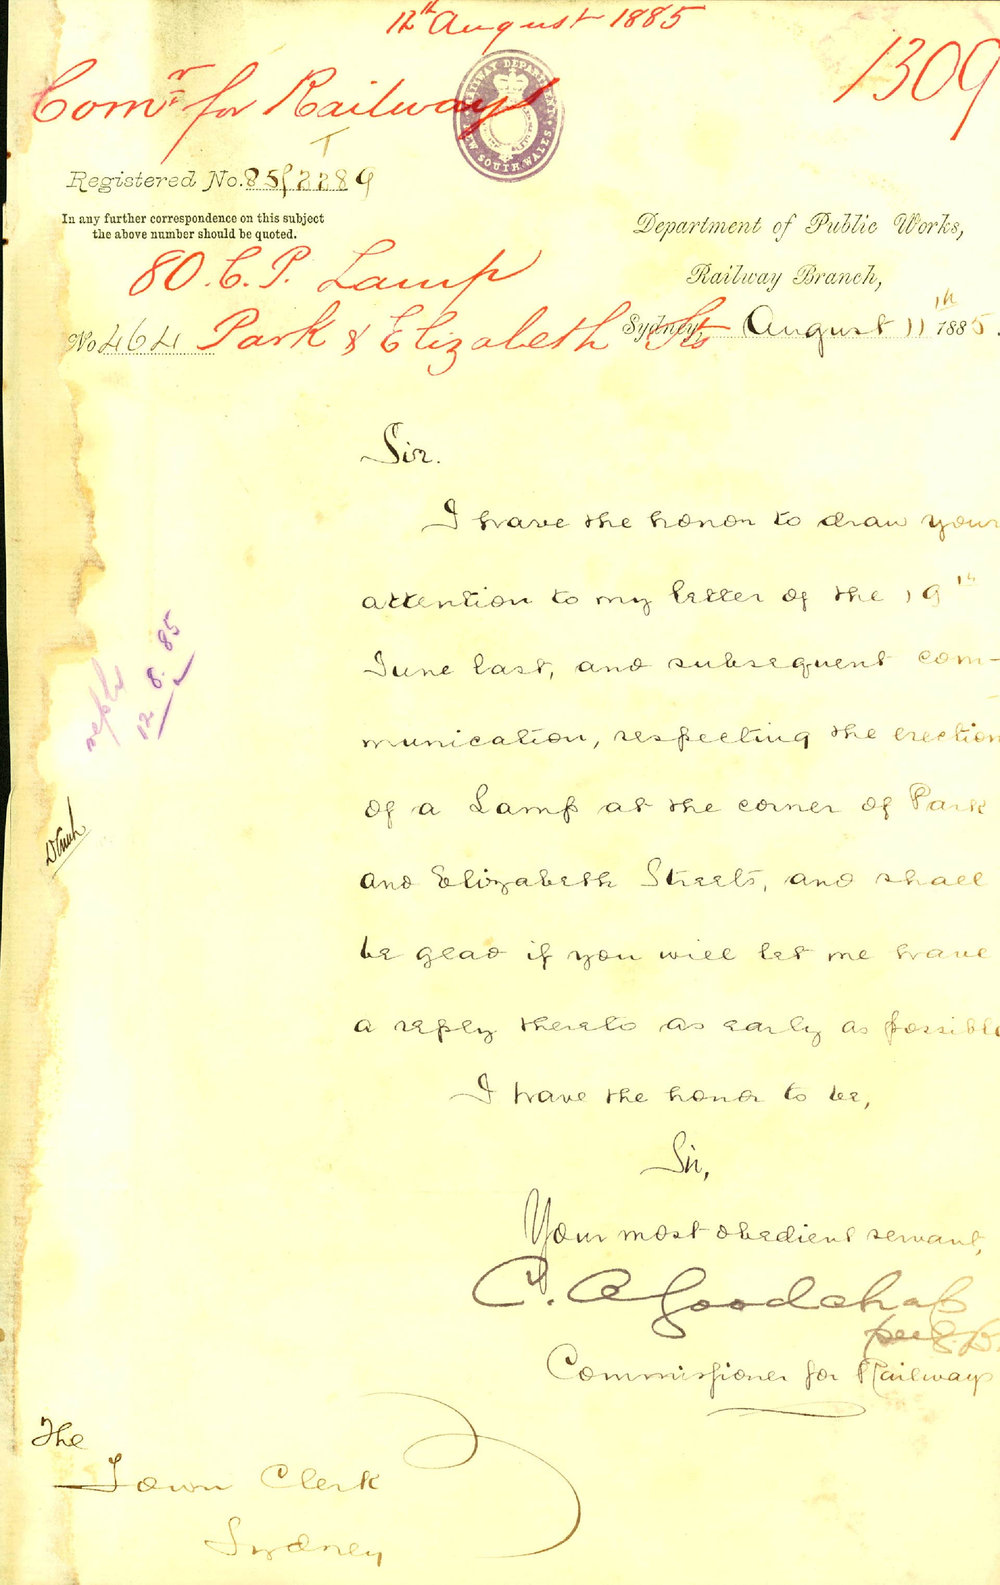 12th August 1885
1309
Comr for Railways
RAILWAY DEPARTMENT
NEW SOUTH WALES
T
Registered No. 85/2289
In any further correspondence on this subject
the above number should be quoted.
Department of Public Works,
Railway Branch,
80 C.P. Lamp
Sydney, August 11th 1885.
No 464 Park & Elizabeth Sts
Sir.
I have the honor to draw your
attention to my letter of the 19th
June last, and subsequent com-
munication, respecting the erection
of a Lamp at the corner of Park
and Elizabeth Streets, and shall
be glad if you will let me have
a reply thereto as early as possible
I have the honor to be,
Sir,
Your most obedient servant,
C. A Goodchap
per
Commissioner for Railways
12.8.85
The
Town Clerk
Sydney